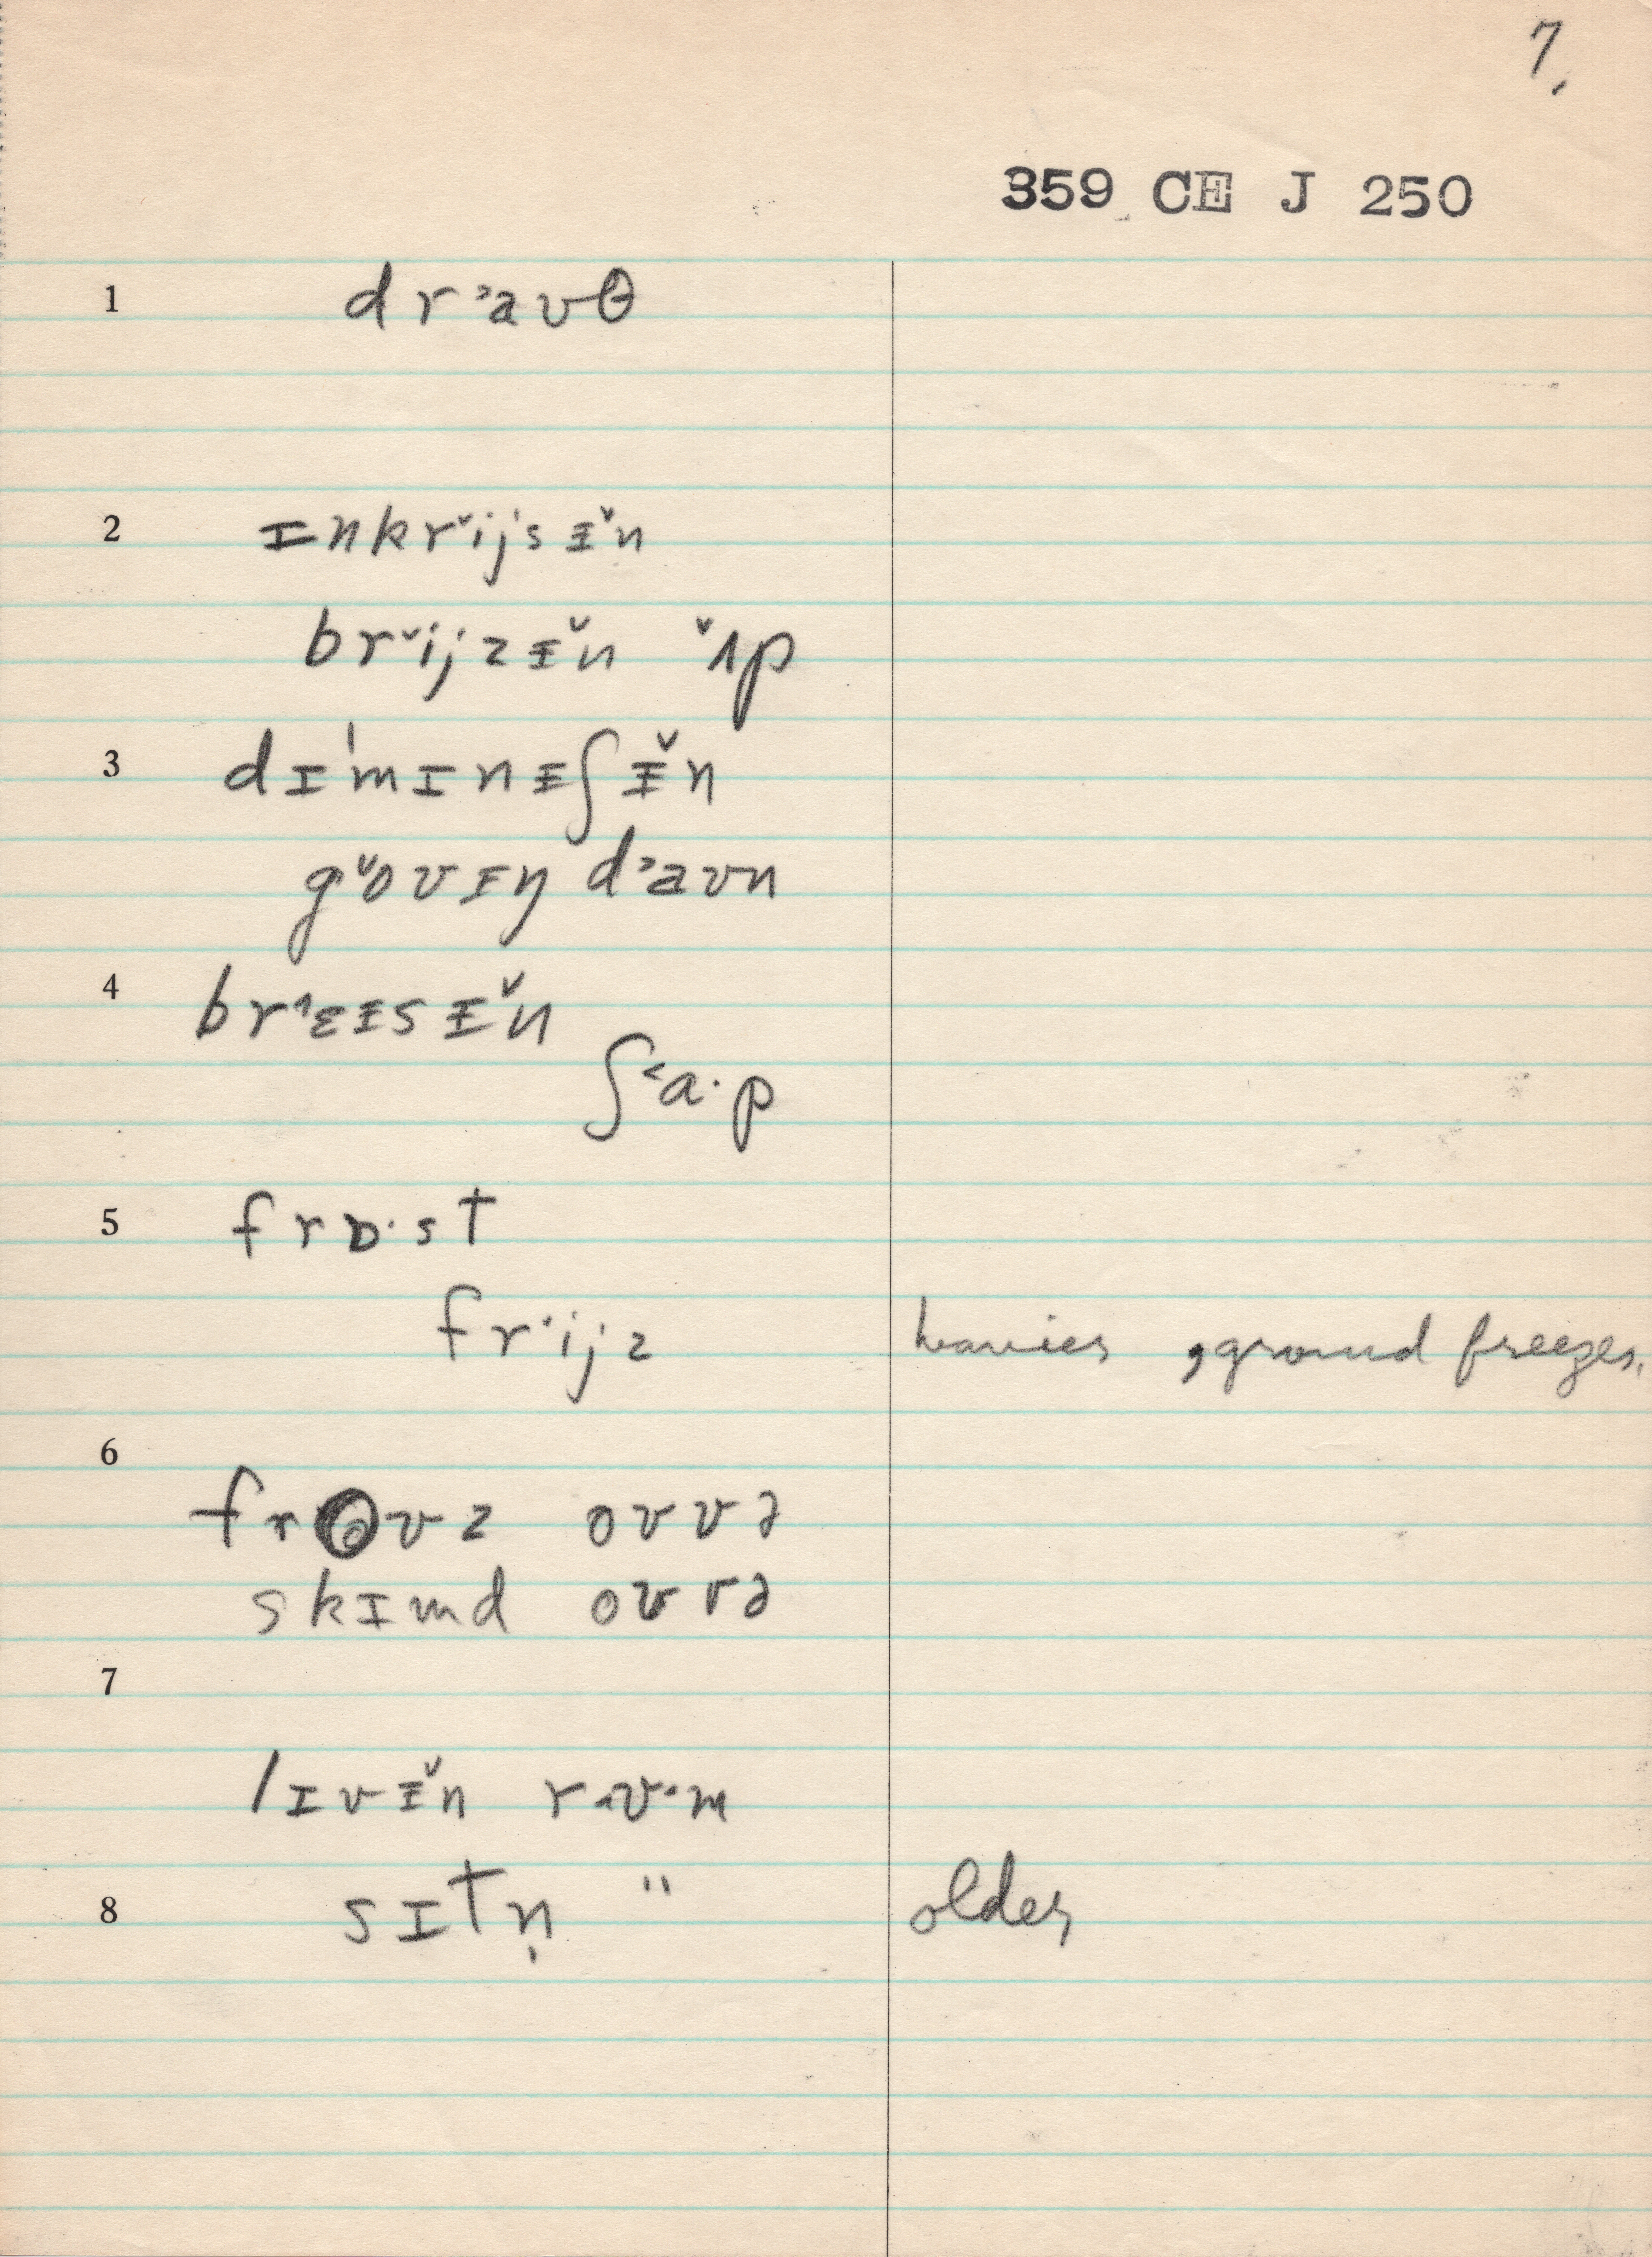 7.
359 CE J 250
1 dr˃aʊθ
2 ɪnkr˅ijsɪ̵̌n
br˅ijzɪ̵̌n ˅ʌp
3 dɪˈmɪnɪ̵ʃɪ̵̌n
g˅oʊɪŋ d˃aʊn
4 br˄ɛɪ̵sɪ̵̌n
ʃ˂a·p
5 frɒ·st
fr˅ijz heavier, ground freezes.
6 froʊz oʊvə
skɪmd oʊvə
7
lɪvɪ̵̌n rʊ·m
8 sɪtn̩ " older